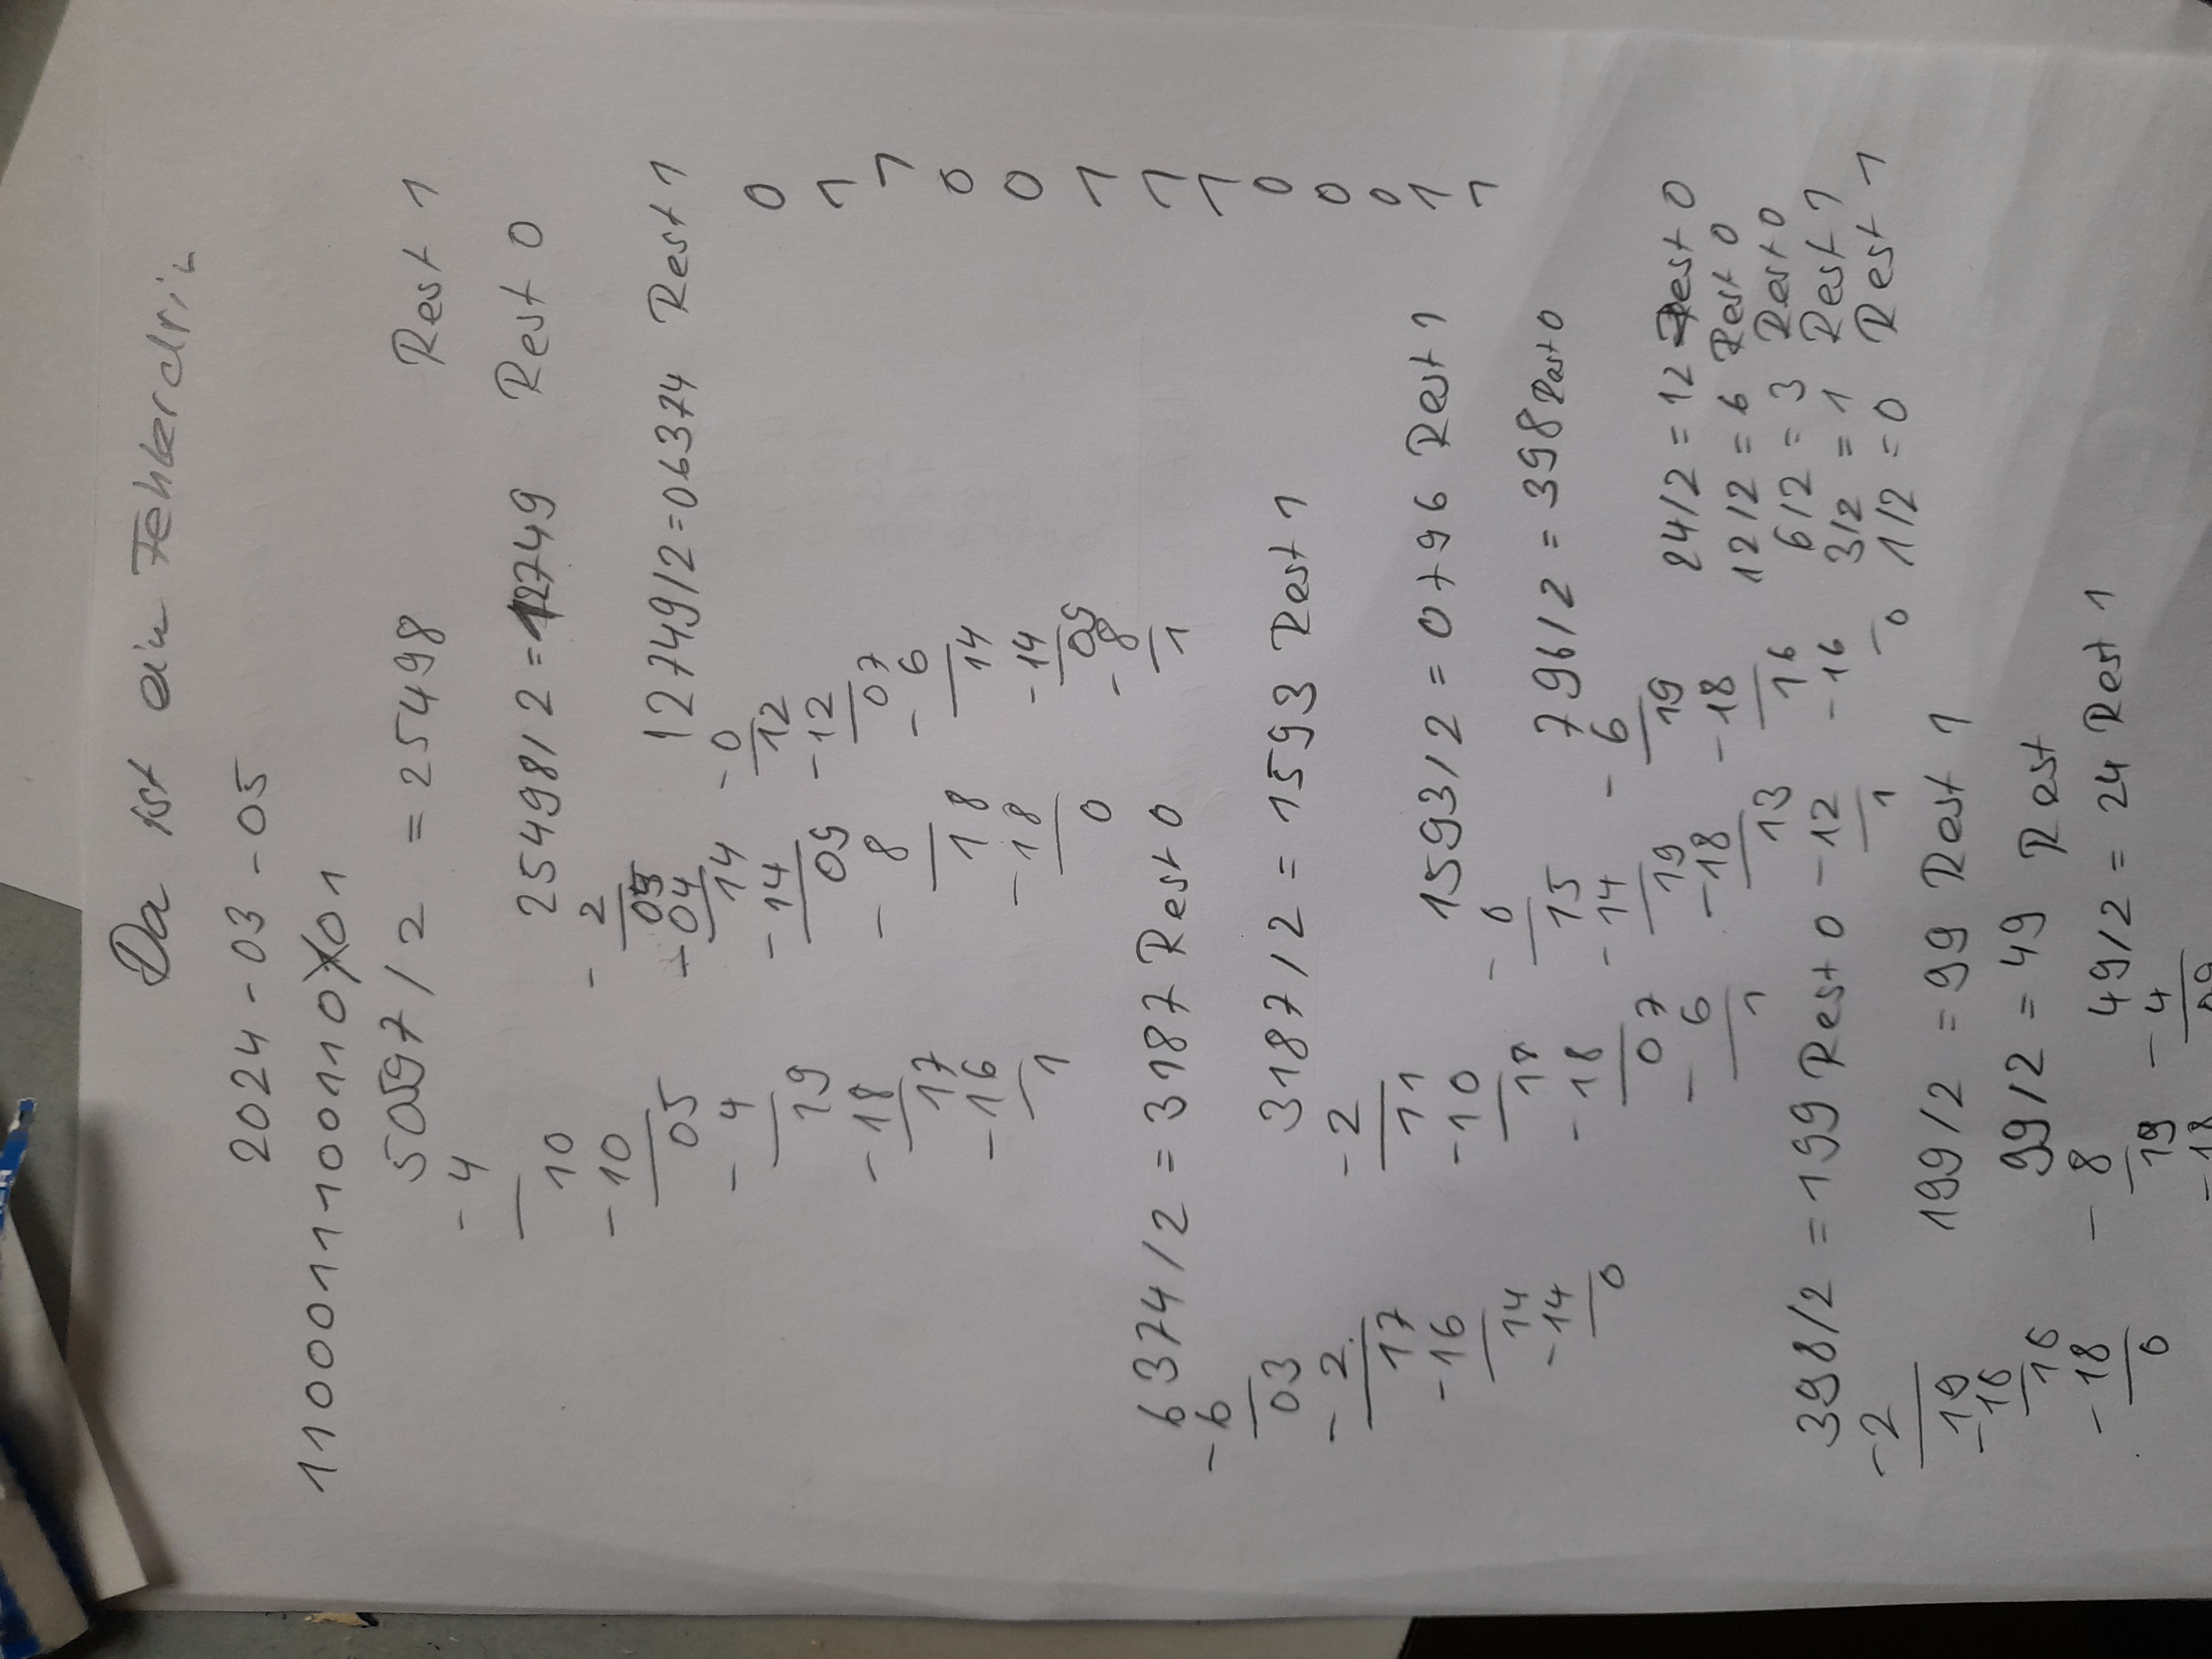 Da ist ein Fehler drin
2024-03-05
110001110011001
50597/2 = 25498 Rest 1
-4
10
-10
05
-4
19
-18
17
-16
1
25498/2 = 12749 Rest 0
-2
05
-04
14
-14
09
-8
18
-18
0
12749/2 = 06374 Rest 1
-0
12
-12
07
-6
14
-14
09
-8
1
0
1
1
0
0
1
1
1
0
0
0
1
1
6374/2 = 3187 Rest 0
-6
03
-2
17
-16
14
-14
0
3187/2 = 1593 Rest 1
-2
11
-10
18
-18
07
-6
1
1593/2 = 0796 Rest 1
-0
15
-14
19
-18
13
-12
1
796/2 = 398 Rest 0
-6
19
-18
16
-16
0
398/2 = 199 Rest 0
-2
19
-18
18
-18
0
199/2 = 99 Rest 1
99/2 = 49 Rest
-8
19
-18
49/2 = 24 Rest 1
-4
09
24/2 = 12 Rest 0
12/2 = 6 Rest 0
6/2 = 3 Rest 0
3/2 = 1 Rest 1
1/2 = 0 Rest 1